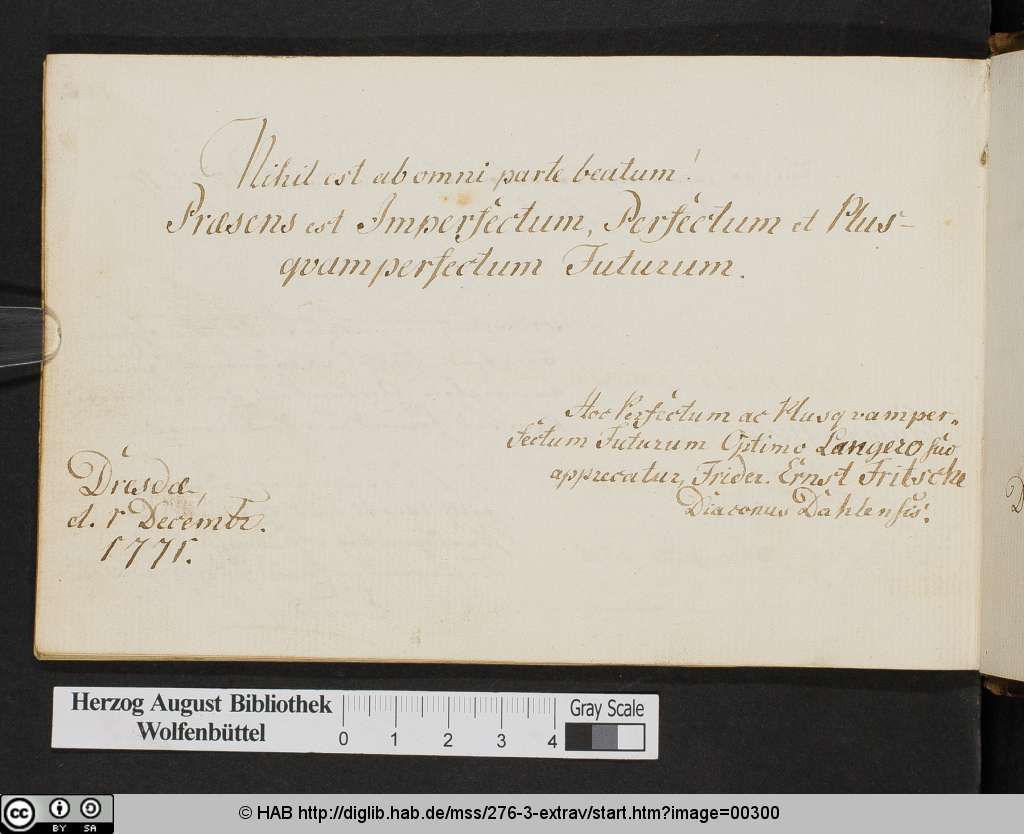 Nihil est ab omni parte beatum!
Præsens est Imperfectum, Perfectum et Plus-
qvamperfectum Futurum.
Hoc Perfectum ac Plusqvamper-
fectum Futurum Optimo Langero suo
apprecatur, Frider. Ernst Fritsche
Diaconus Dahlensis.
Dresdæ,
d. 1 Decembr.
1771.
Herzog August Bibliothek
Wolfenbüttel
0 1 2 3 4
Gray Scale
cc BY SA
© HAB http://diglib.hab.de/mss/276-3-extrav/start.htm?image=00300